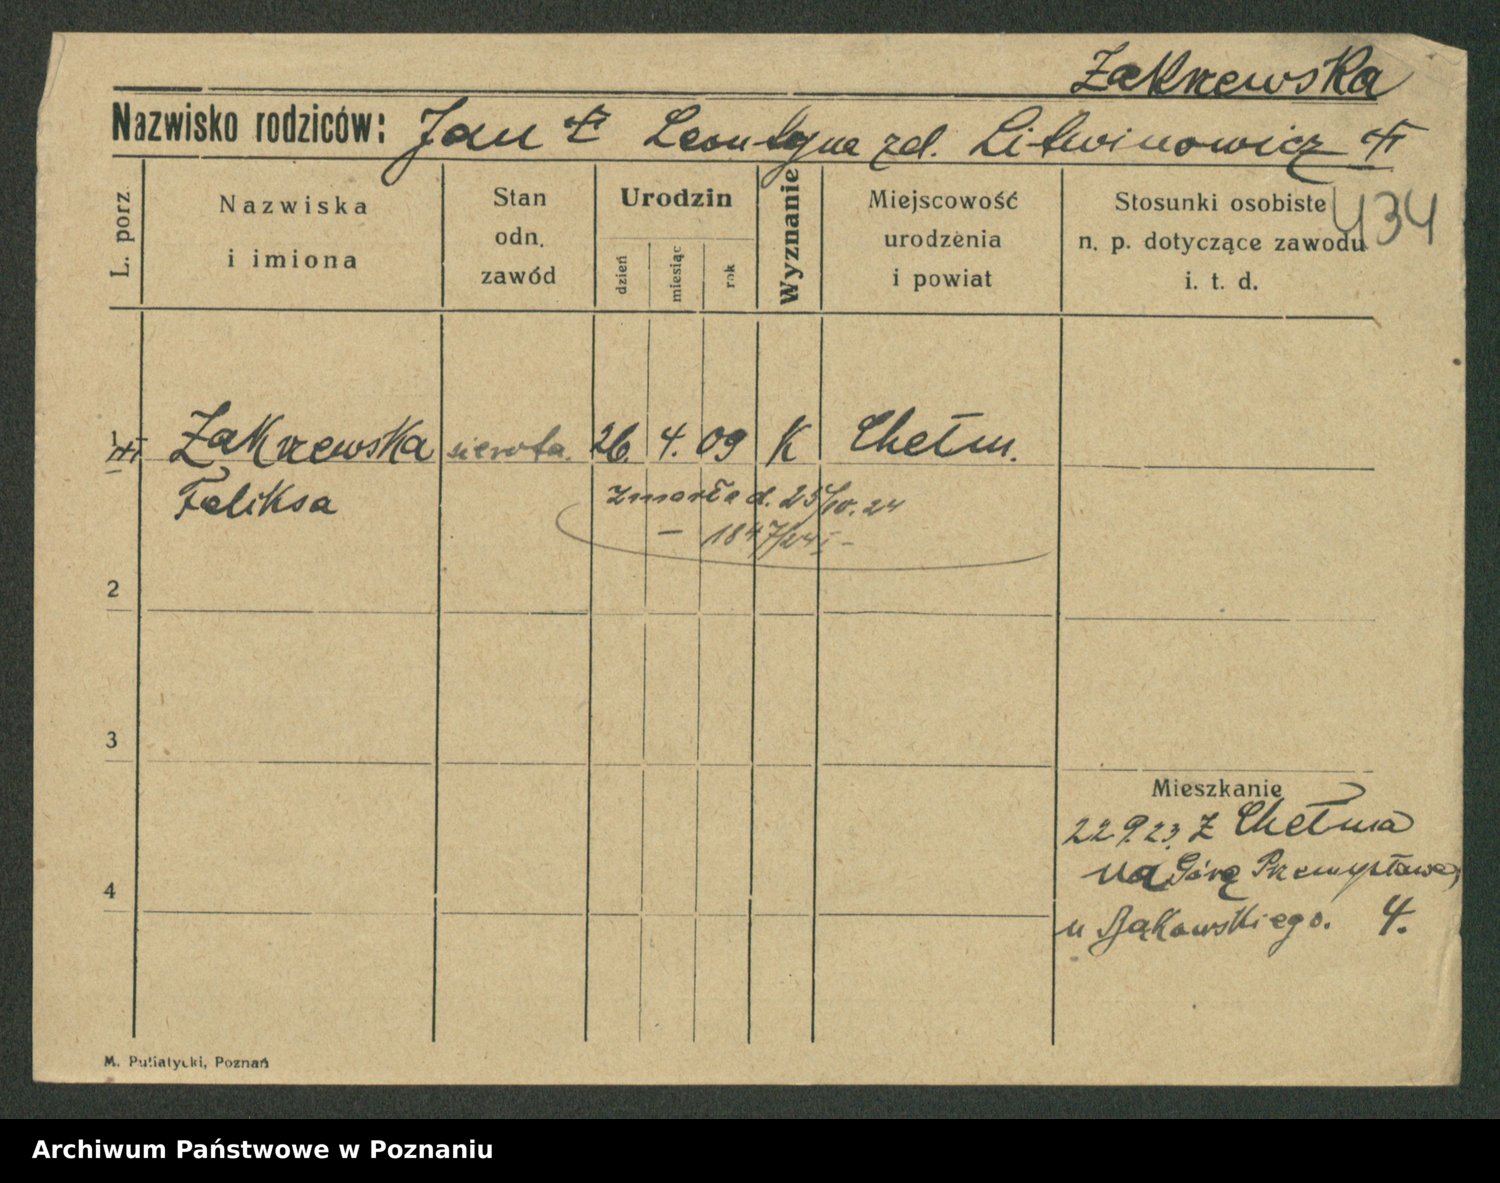 Zakrzewska
Nazwisko rodziców: Jan Leontyna zd. Litwinowicz
434
L. porz.
Nazwiska
i imiona
Stan
odn.
zawód
Urodzin
dzień
miesiąc
rok
Wyznanie
Miejscowość
urodzenia
i powiat
Stosunki osobiste
n. p. dotyczące zawodu
i. t. d.
1 Zakrzewska sierota. 26. 4. 09 K Chełm.
Feliksa
zmarła d. 25/10. 24
— 1847/24 I —
2
3
Mieszkanie
22 9. 23. z Chełma
na Górę Przemysława
4
u Bąkowskiego. 4.
M. Putiatycki, Poznań
Archiwum Państwowe w Poznaniu